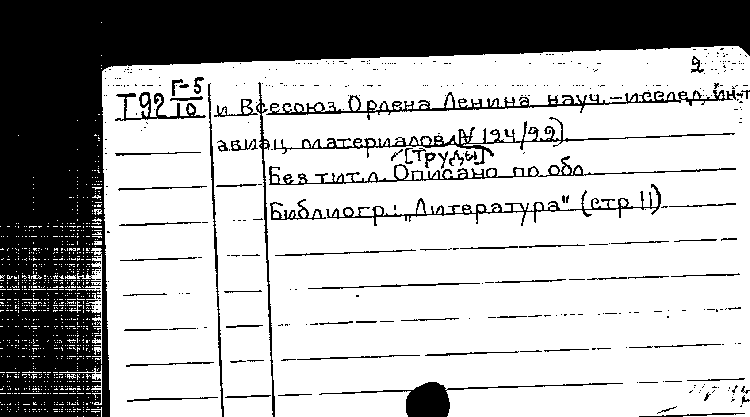 2
Т92 Г-5/10 и Всесоюз. Ордена Ленина науч.-исслед. ин-т
авиац. материалов. [№ 124/92].
[Труды]
Без тит. л. Описано по обл.
Библиогр.: „Литература" (стр 11)